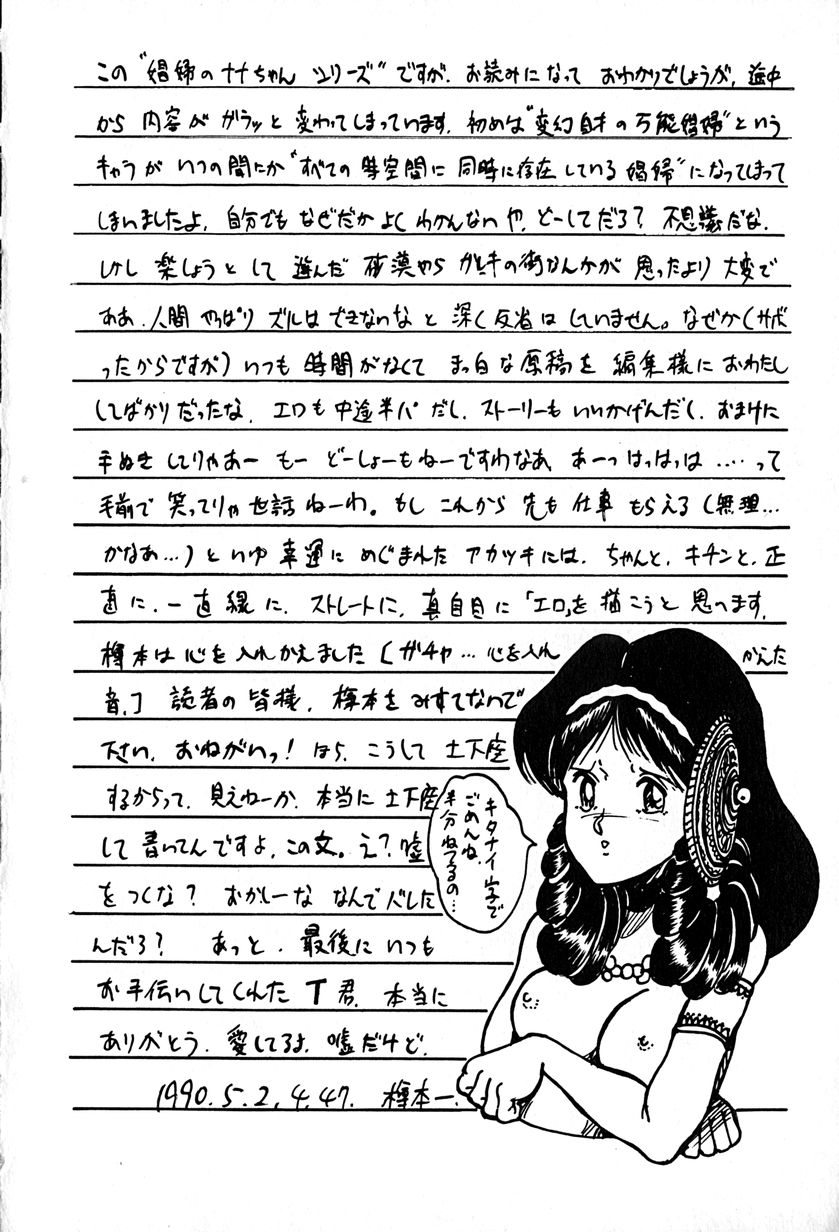 この"娼婦のナナちゃん シリーズ"ですが、お読みになって おわかりでしょうが、途中
から 内容が ガラッと 変わってしまっています。初めは"変幻自才の万能娼婦"という
キャラが いつの間にか"すべての 時空間に 同時に存在している 娼婦"になってしまって
しまいましたよ。自分でも なぜだか よく わかんないや。どーしてだろ? 不思議だな。
しかし 楽しようとして 選んだ 砂漠やら ガレキの街なんかが 思ったより 大変で
ああ、人間 やっぱり ズルは できないな と 深く反省は していません。なぜか(サボ
ったからですが)いつも 時間がなくて まっ白な原稿を 編集様に おわたし
してばかりだったな。エロも 中途半パ だし、ストーリーも いいかげんだし、おまけに
手ぬき してりゃあー もー どーしょーもねーですわなあ、あーっ はっはっは ‥‥って
手前で 笑ってりゃ 世話 ねーわ。もし これから 先も 仕事 もらえる(無理…
かなあ…)といゆ 幸運に めぐまれた アカツキには、ちゃんと、キチンと、正
直に、一直線に、ストレートに、真自目に「エロ」を 描こうと 思へます。
樽本は 心を 入れかえました〔ガチャ… 心を入れ かえた
音。〕 読者の 皆様、樽本を みすてないで
下さい。おねがいっ! ほら、こうして 土下座
するからって、見えねーか、本当に 土下座
して 書いてんですよ、この文。え? 嘘
をつくな? おかしーな なんで バレた
んだろ? あっと、最後に いつも
お手伝いしてくれた T君、本当に
ありがとう。愛してるよ。嘘だけど。
1990.5.2.4.47. 樽本一.
キタナイ字で
ごめんね。
半分ねてるの…